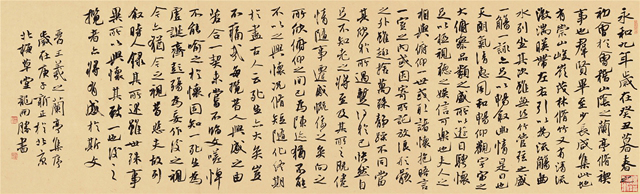 永和九年歲在癸丑暮春之
初會於會稽山陰之蘭亭脩禊
事也羣賢畢至少長咸集此地
有崇山峻嶺茂林脩竹又有清流
激湍映帶左右引以為流觴曲
水列坐其次雖無絲竹管弦之盛
一觴一詠亦足以暢敘幽情是日也
天朗氣清惠風和暢仰觀宇宙之
大俯察品類之盛所以遊目騁懷
足以極視聽之娛信可樂也夫人之
相與俯仰一世或取諸懷抱晤言
一室之內或因寄所託放浪形骸
之外雖趣舍萬殊靜躁不同當
其欣於所遇暫得於己快然自
足不知老之將至及其所之既倦
情隨事遷感慨係之矣向之
所欣俯仰之間已為陳跡猶不能
不以之興懷況脩短隨化終期
於盡古人云死生亦大矣豈
不痛哉每攬昔人興感之由
若合一契未嘗不臨文嗟悼
不能喻之於懷固知一死生為
虛誕齊彭殤為妄作後之視
今亦猶今之視昔悲夫故列
敘時人錄其所述雖世殊事
異所以興懷其致一也後之
攬者亦將有感於斯文
晉王羲之蘭亭集序
歲在庚子新正於北京
草堂龍開勝書